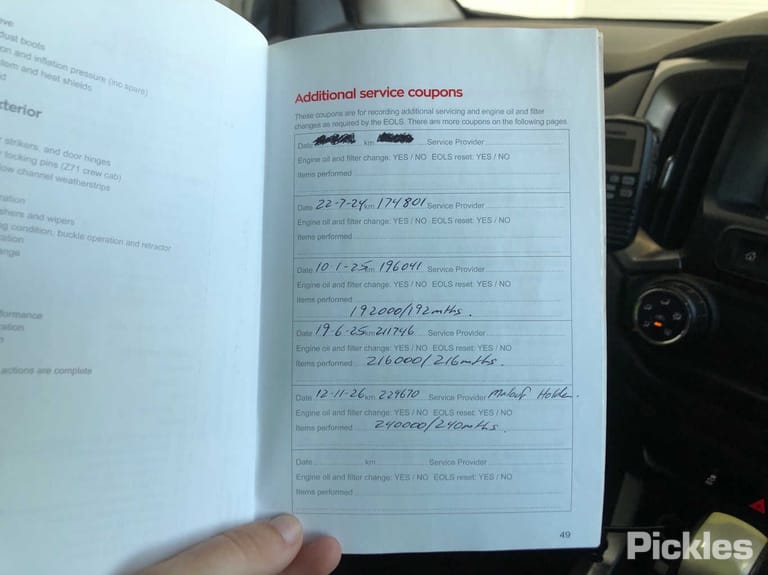 eve
dust boots
on and inflation pressure (inc spare)
stem and heat shields
d
xterior
r strikers, and door hinges
r locking pins (Z71 crew cab)
low channel weatherstrips
ration
shers and wipers
ng condition, buckle operation and retractor
ation
ange
formance
ration
n
actions are complete
Additional service coupons
These coupons are for recording additional servicing and engine oil and filter
changes as required by the EOLS. There are more coupons on the following pages.
Date km Service Provider
Engine oil and filter change: YES / NO EOLS reset: YES / NO
Items performed
Date 22-7-24 km 174801 Service Provider
Engine oil and filter change: YES / NO EOLS reset: YES / NO
Items performed
Date 10-1-25 km 196041 Service Provider
Engine oil and filter change: YES / NO EOLS reset: YES / NO
Items performed
192000/192mths.
Date 19-6-25 km 211746 Service Provider
Engine oil and filter change: YES / NO EOLS reset: YES / NO
Items performed 216000/216mths.
Date 12-11-26 km 229670 Service Provider Malouf Holden
Engine oil and filter change: YES / NO EOLS reset: YES / NO
Items performed 240000/240mths.
Date km Service Provider
Engine oil and filter change: YES / NO EOLS reset: YES / NO
Items performed
49
Pickles